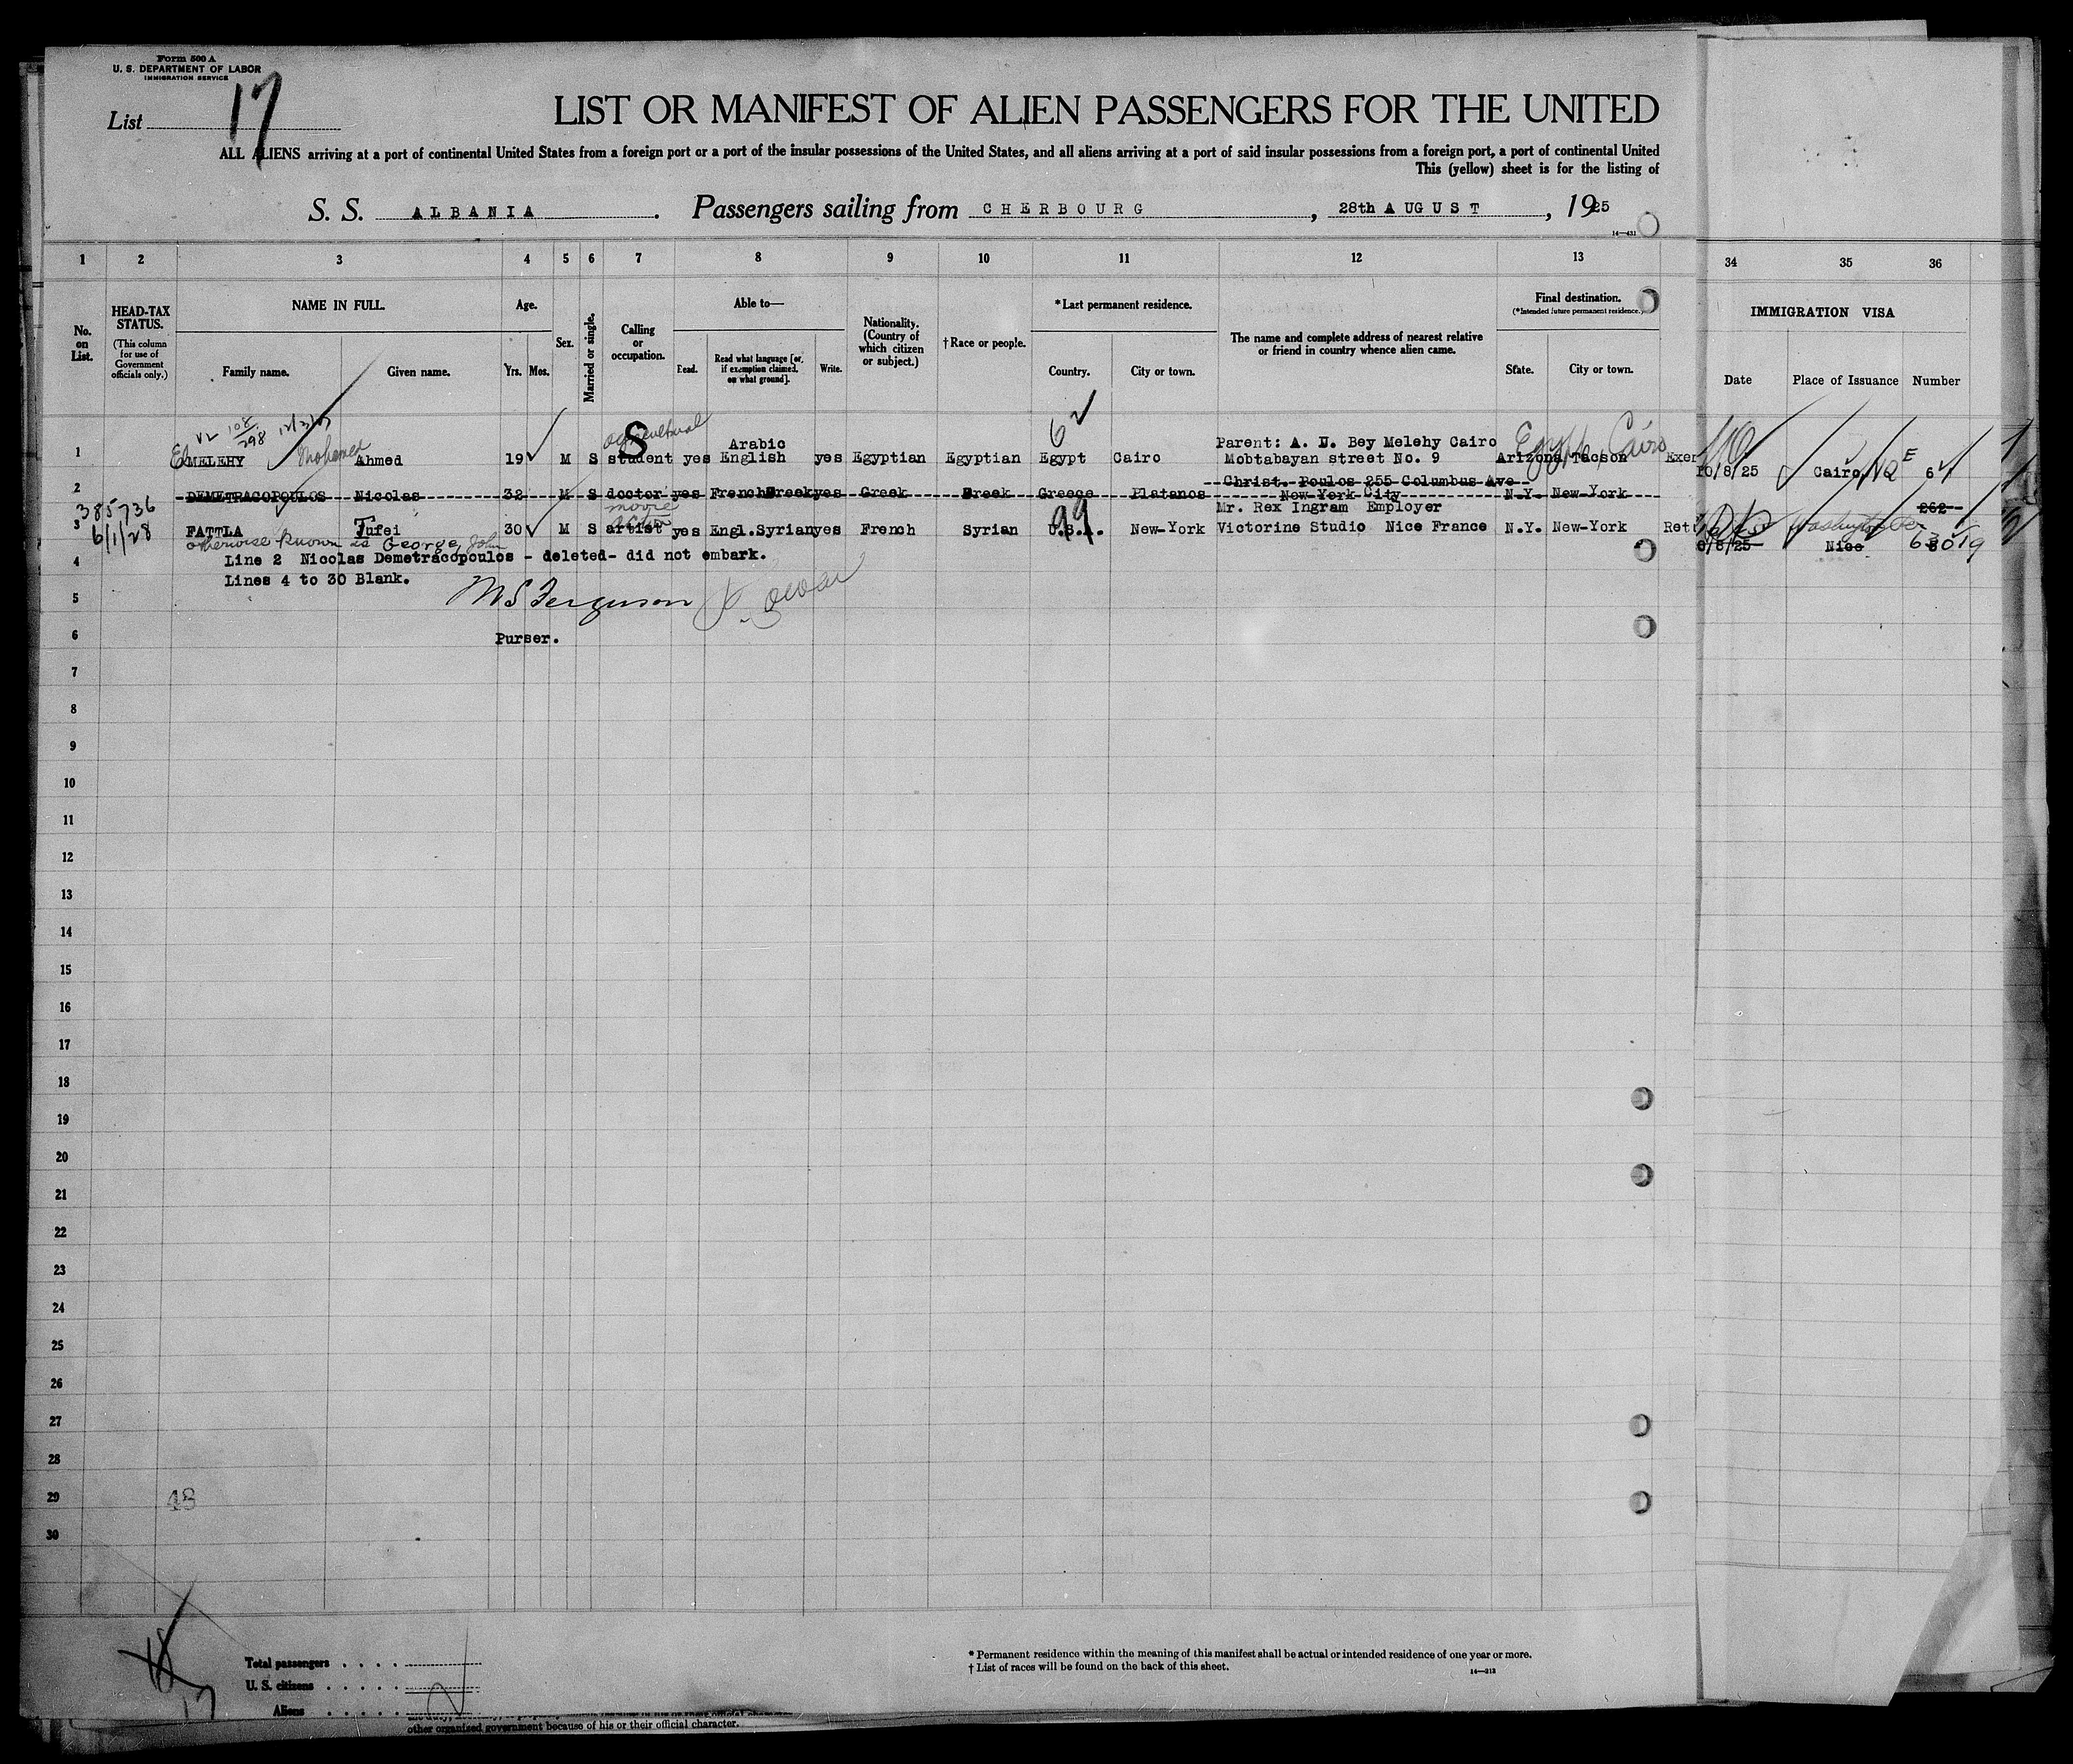 Form 500 A
U. S. DEPARTMENT OF LABOR
IMMIGRATION SERVICE
List 17
LIST OR MANIFEST OF ALIEN PASSENGERS FOR THE UNITED
ALL ALIENS arriving at a port of continental United States from a foreign port or a port of the insular possessions of the United States, and all aliens arriving at a port of said insular possessions from a foreign port, a port of continental United
This (yellow) sheet is for the listing of
S. S. ALBANIA. Passengers sailing from CHERBOURG, 28th AUGUST, 1925
14—431
1 2 3 4 5 6 7 8 9 10 11 12 13 34 35 36
No. on List.
HEAD-TAX STATUS.
(This column for use of Government officials only.)
NAME IN FULL.
Family name. Given name.
Age.
Yrs. Mos.
Sex.
Married or single.
Calling or occupation.
Able to—
Read. Read what language [or, if exemption claimed, on what ground]. Write.
Nationality. (Country of which citizen or subject.)
†Race or people.
*Last permanent residence.
Country. City or town.
The name and complete address of nearest relative or friend in country whence alien came.
Final destination.
(*Intended future permanent residence.)
State. City or town.
IMMIGRATION VISA
Date Place of Issuance Number
V2 108/298 agricultural 6
Arabic Parent: A. N. Bey Melehy Cairo Egypt, Cairo
1 El MELEHY Mohamed Ahmed 19 M S S student yes English yes Egyptian Egyptian Egypt Cairo Mobtabayan street No. 9 Arizona Tacson Exem 10/8/25 Cairo 64
Christ. Poulos 255 Columbus Ave
2 DEMETRACOPOULOS Nicolas 32 M S doctor yes French Greek yes Greek Greek Greece Platanos New York City N.Y. New-York 262
385736 movie actor Mr. Rex Ingram Employer
3 6/1/28 FATTLA Jufei 30 M S artist yes Engl.Syrian yes French Syrian U.S.A. 99 New-York Victorine Studio Nice France N.Y. New-York Ret Washington
otherwise known is George, John 8/8/25 Nice 63019
4 Line 2 Nicolas Demetracopoulos - deleted- did not embark.
Lines 4 to 30 Blank.
5 M S Ferguson
6 Purser.
7
8
9
10
11
12
13
14
15
16
17
18
19
20
21
22
23
24
25
26
27
28
29 48
30
18
17
Total passengers
U. S. citizens
Aliens
* Permanent residence within the meaning of this manifest shall be actual or intended residence of one year or more.
† List of races will be found on the back of this sheet.
14—212
other organized government because of his or their official character.